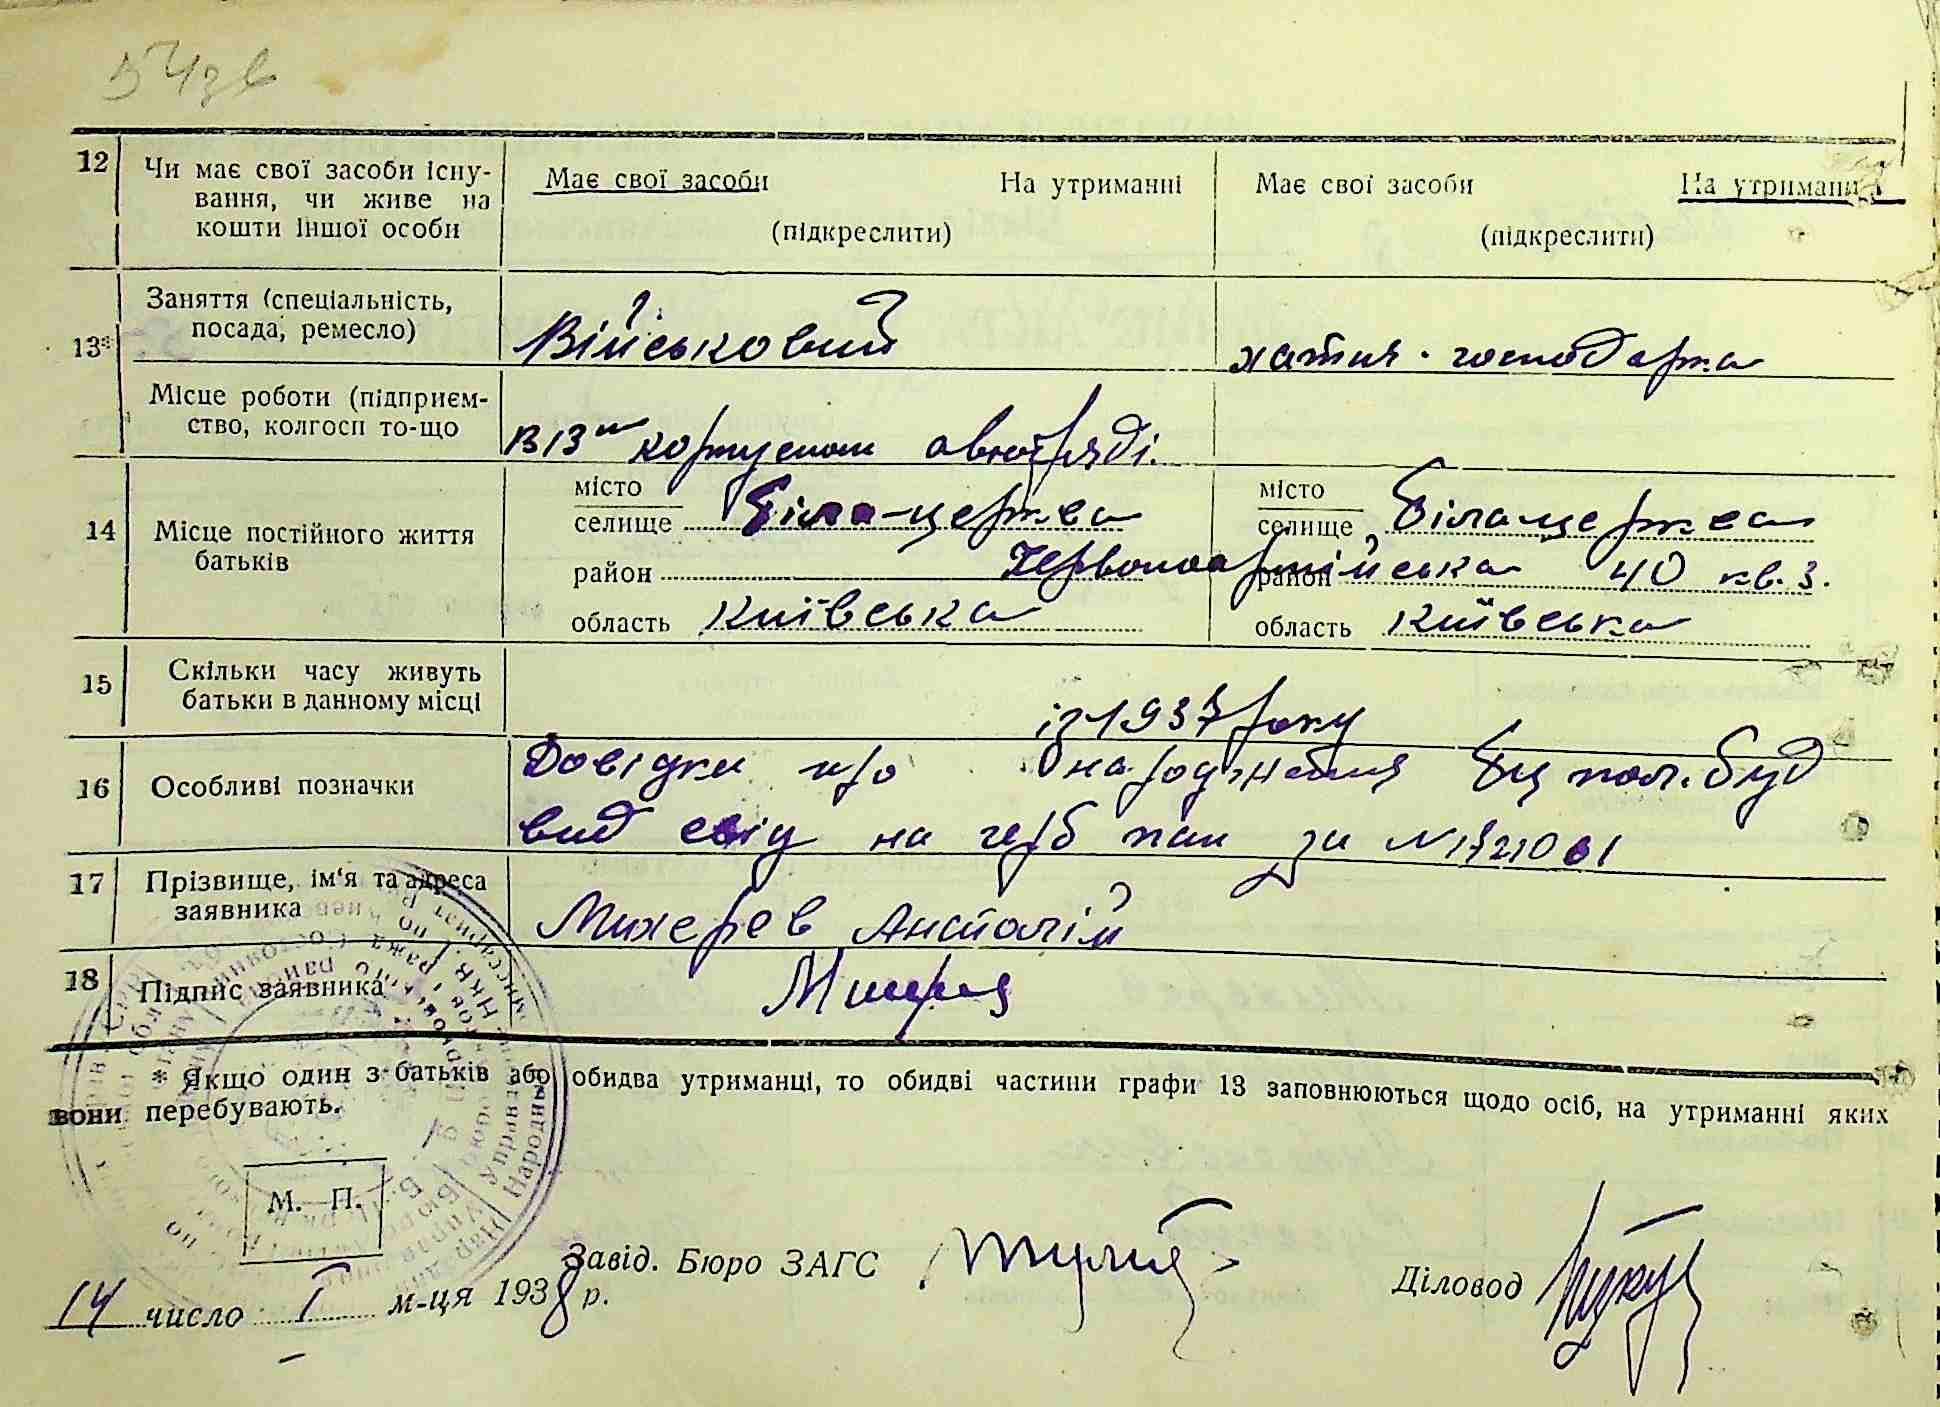 54зв
12 Чи має свої засоби існу-
вання, чи живе на
кошти іншої особи
Має свої засоби На утриманні
(підкреслити)
Має свої засоби На утриманні
(підкреслити)
13* Заняття (спеціальність,
посада, ремесло)
Військовий
хатня господарка
Місце роботи (підприєм-
ство, колгосп то-що
В 13 корпусном авіотряді.
14 Місце постійного життя
батьків
місто
селище Біла-церква
район
область Київська
місто
селище Біла церква
район Червоноармійська 40 кв. 3.
область Київська
15 Скільки часу живуть
батьки в данному місці
із 1937 року
16 Особливі позначки
Довідки про народження
вид свід на герб пап за №
17 Прізвище, ім'я та адреса
заявника
Михерев Анатолій
18 Підпис заявника
* Якщо один з батьків або обидва утриманці, то обидві частини графи 13 заповнюються щодо осіб, на утриманні яких
вони перебувають.
М. П.
Завід. Бюро ЗАГС
Діловод
14 число I м-ця 1938 р.